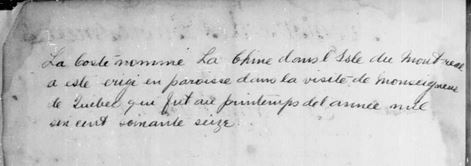 La Coste nommé La Chine dans l'Isle du Mont-real
a esté erigé en paroisse dans la visite de Monseigneur
de Quebec qui fut au printemps del année mil
six cent soixante seize.